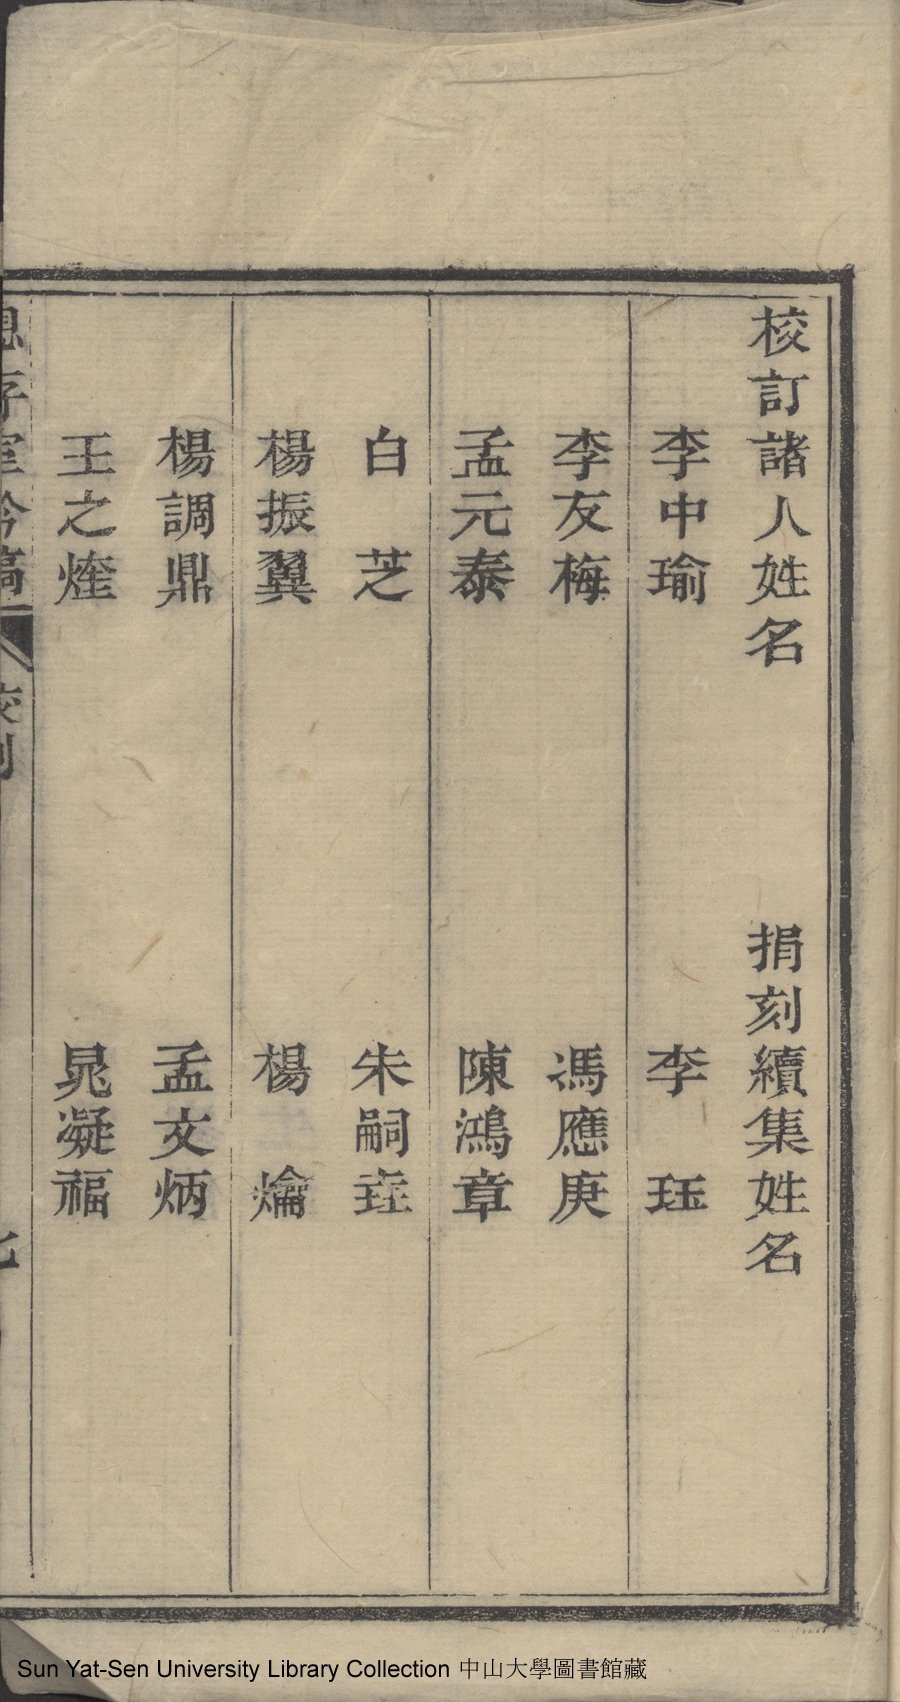 校訂諸人姓名　捐刻續集姓名
李中瑜　李　珏
李友梅　馮應庚
孟元泰　陳鴻章
白　芝　朱嗣垚
楊振翼　楊　爚
楊調鼎　孟文炳
王之煃　晁凝福
Sun Yat-Sen University Library Collection 中山大學圖書館藏